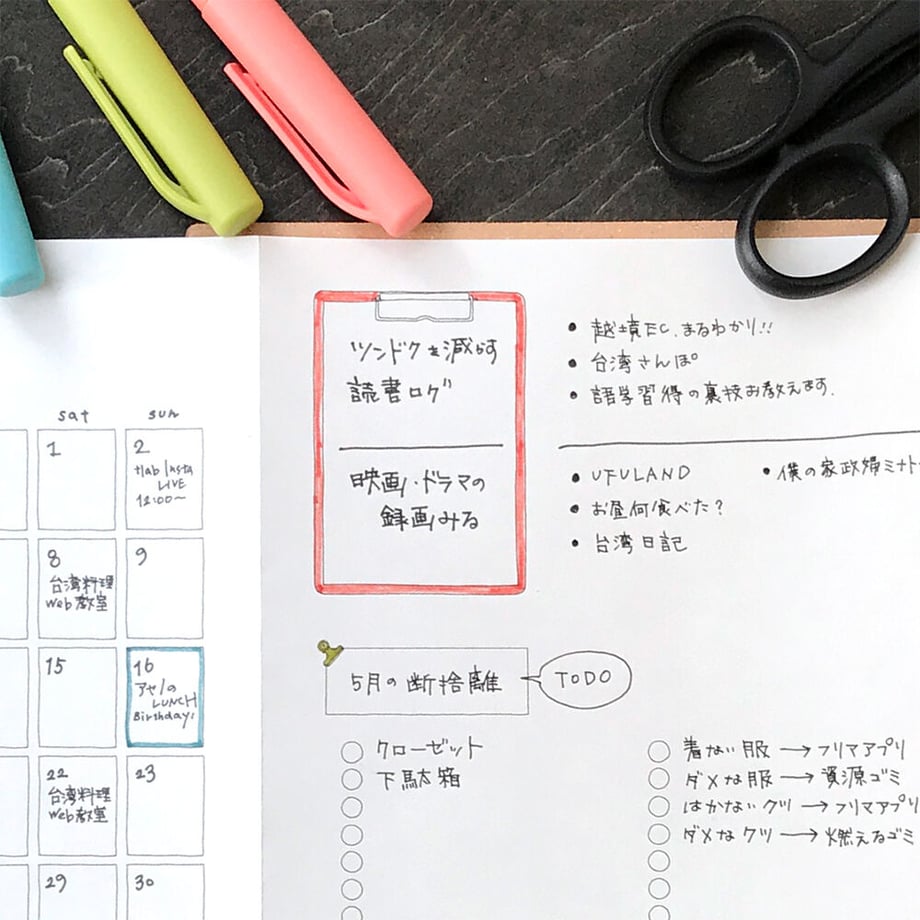 sat sun
1
2
Hab Insta
LIVE
12:00〜
8
台湾料理
Web教室
9
15
16
アヤノ
LUNCH
Birthday!
22
台湾料理
Web教室
23
29
30
ツンドクを減らす
読書ログ
映画・ドラマの
録画みる
• 越境EC、まるわかり!!
• 台湾さんぽ
• 語学習得の裏技お教えます.
• UFULAND
• お昼何食べた?
• 台湾日記
• 僕の家政婦ミナト
5月の断捨離
TODO
クローゼット
下駄箱
着ない服→フリマアプリ
ダメな服→資源ゴミ
はかないクツ→フリマアプリ
ダメなクツ→燃えるゴミ